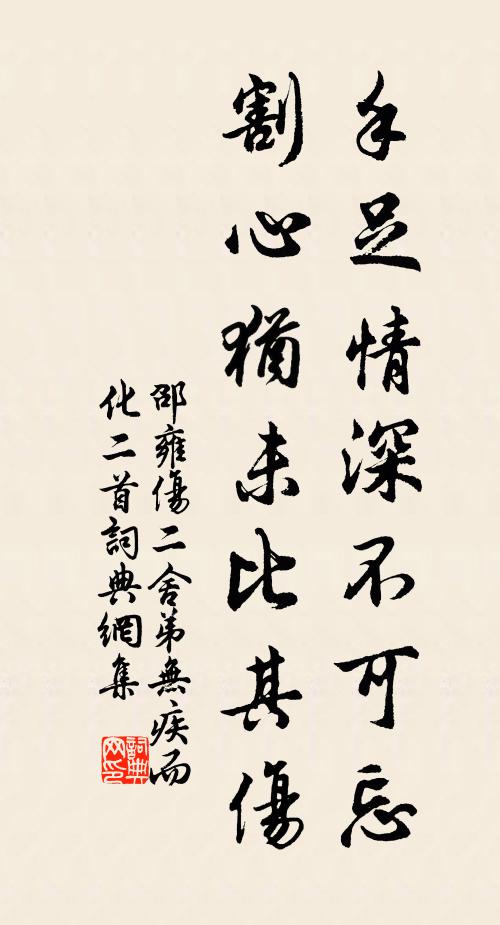 手足情深不可忘
割心猶未比其傷
邵雍傷二舍弟無疾而
化二首詞典網集
詞典
网印